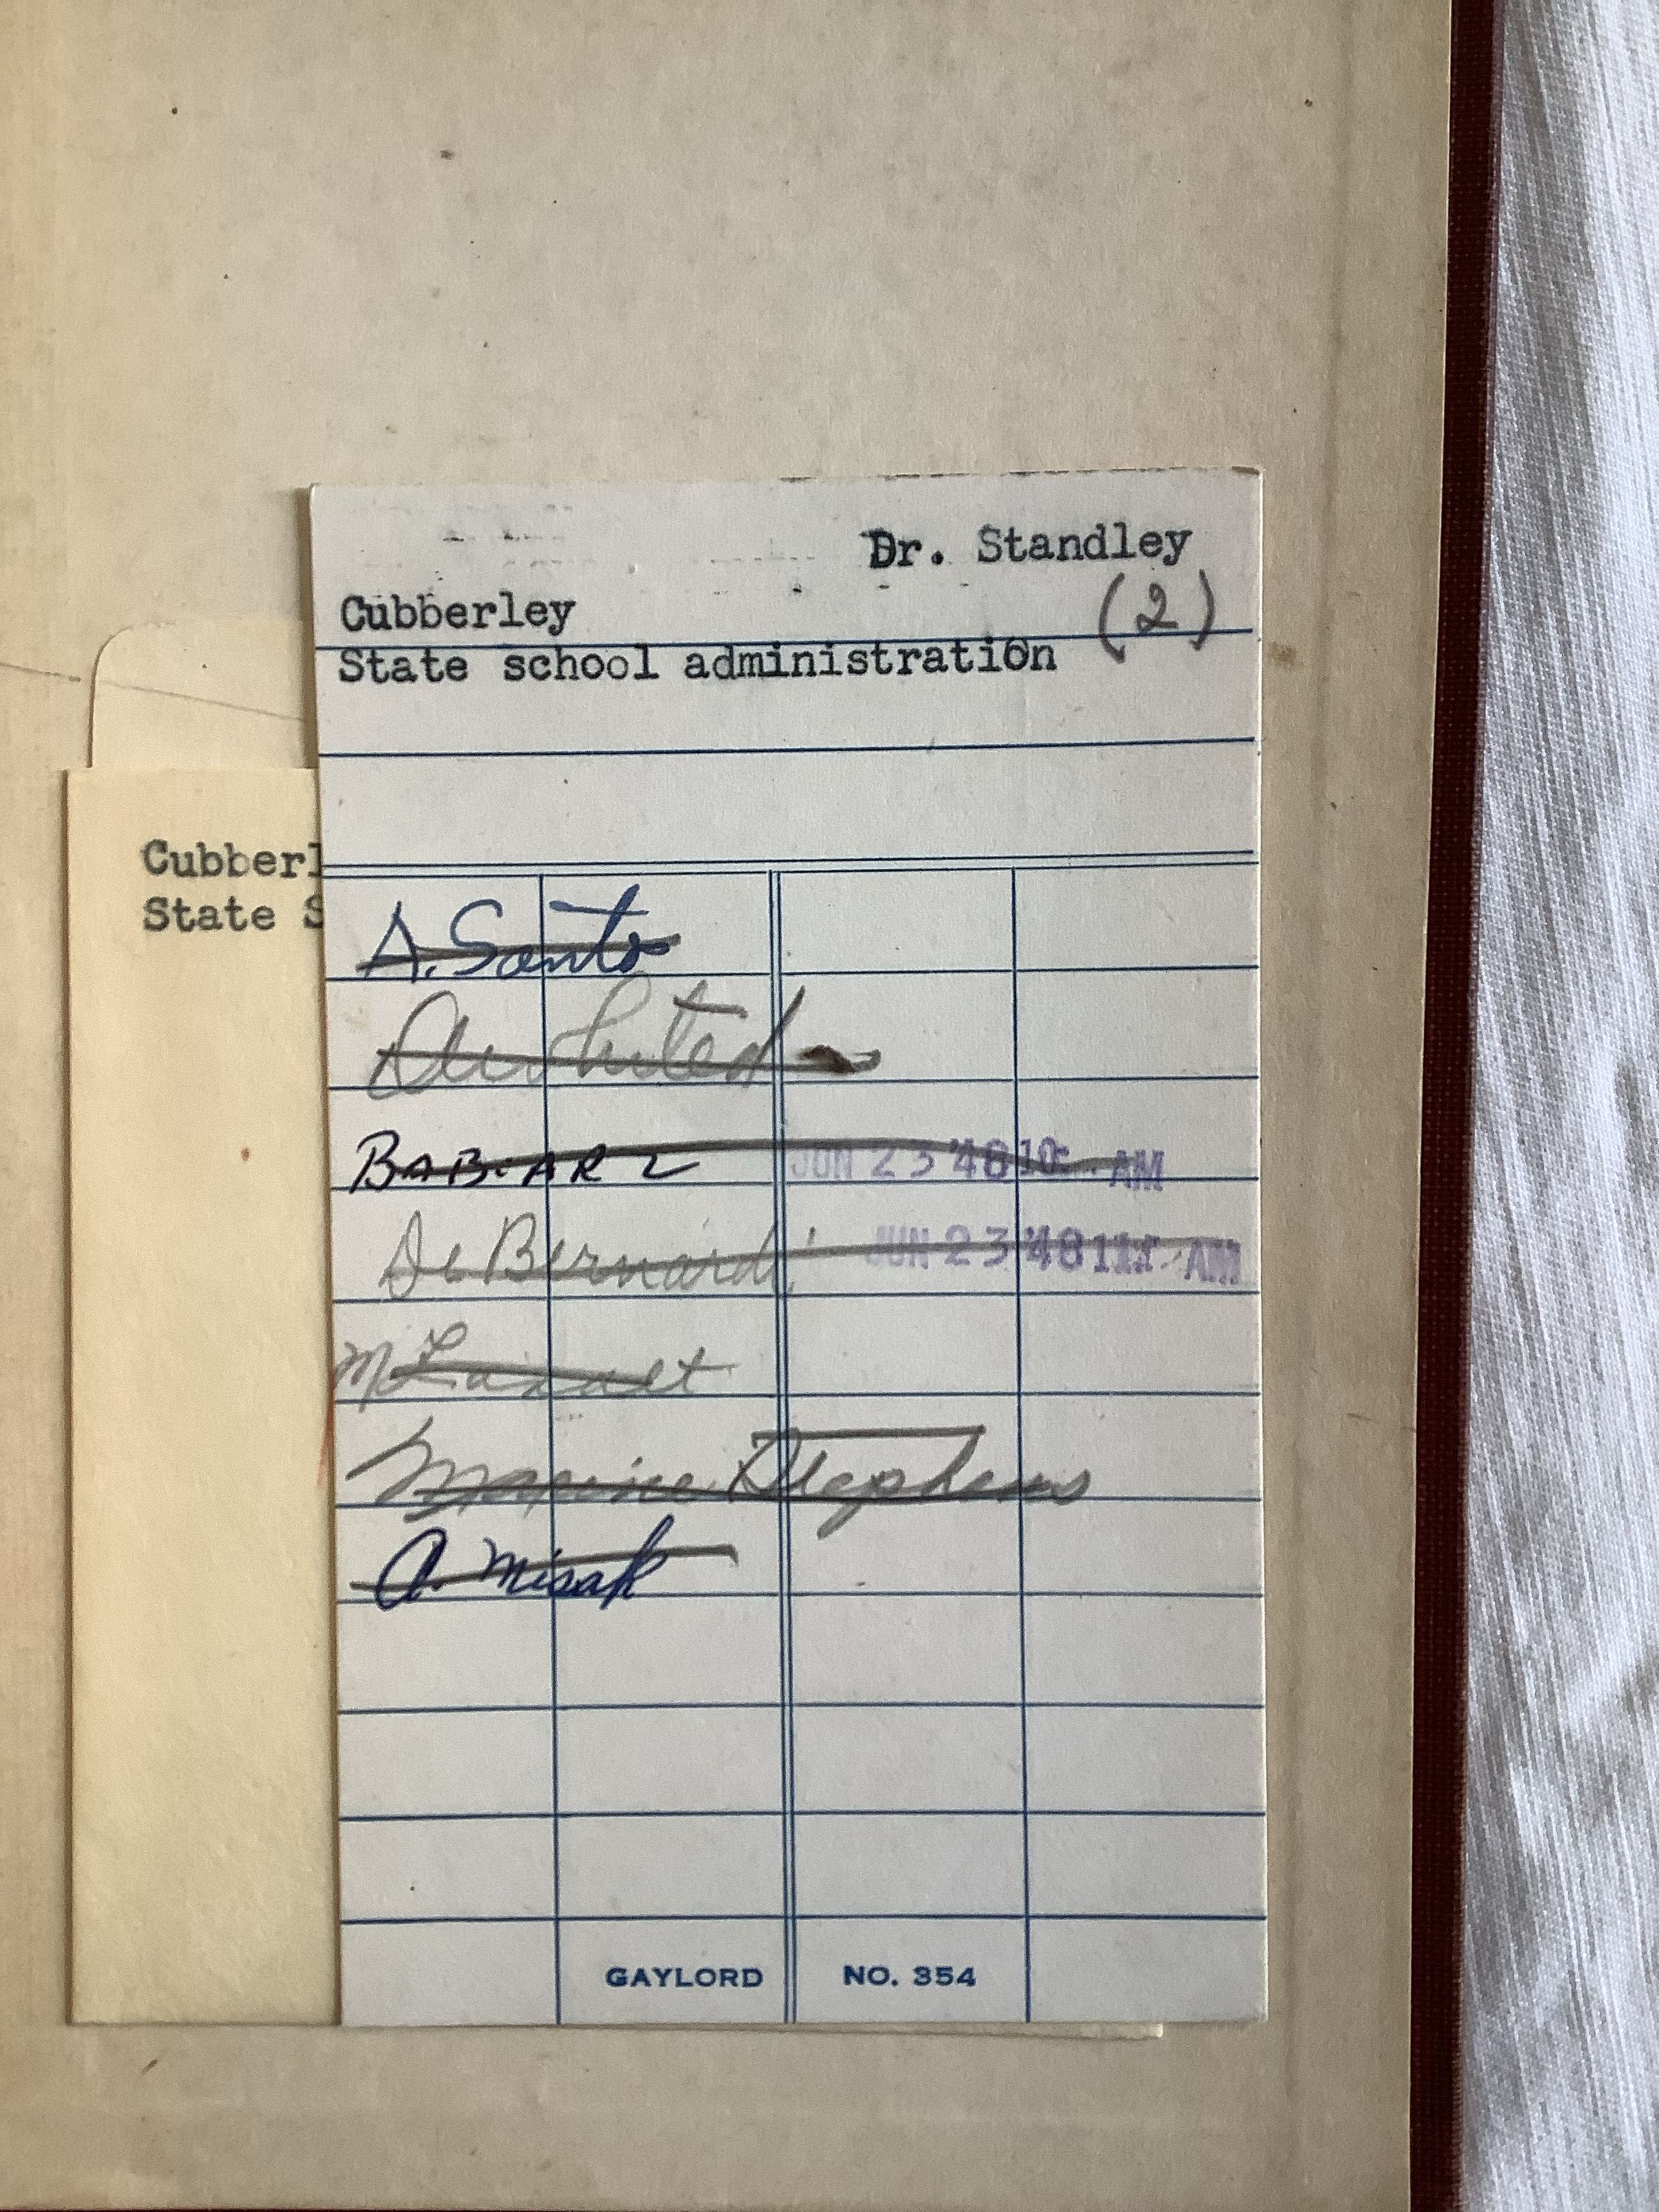 Dr. Standley
(2)
Cubberley
State school administration
Cubberl
State S
A. Santo
BABIARZ JUN 23 '48 AM
De Bernardi JUN 23 '48 AM
M
Maxine Stephens
A. Misak
GAYLORD NO. 354